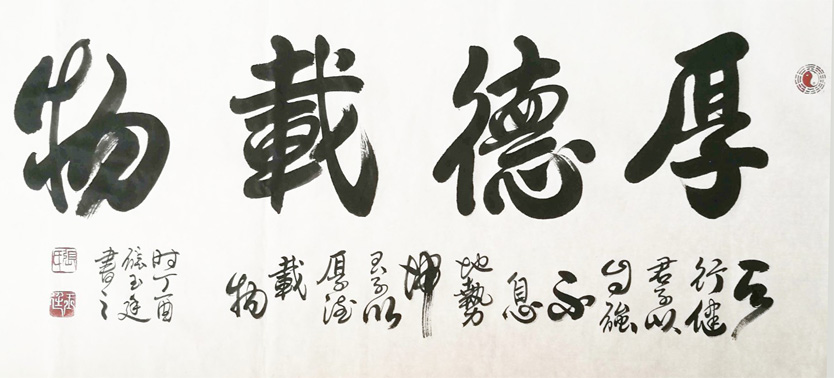 厚德載物
天
行健
君子以
自強
不
息
地勢
坤
君子以
厚德
載
物
时丁酉
張玉廷
書之